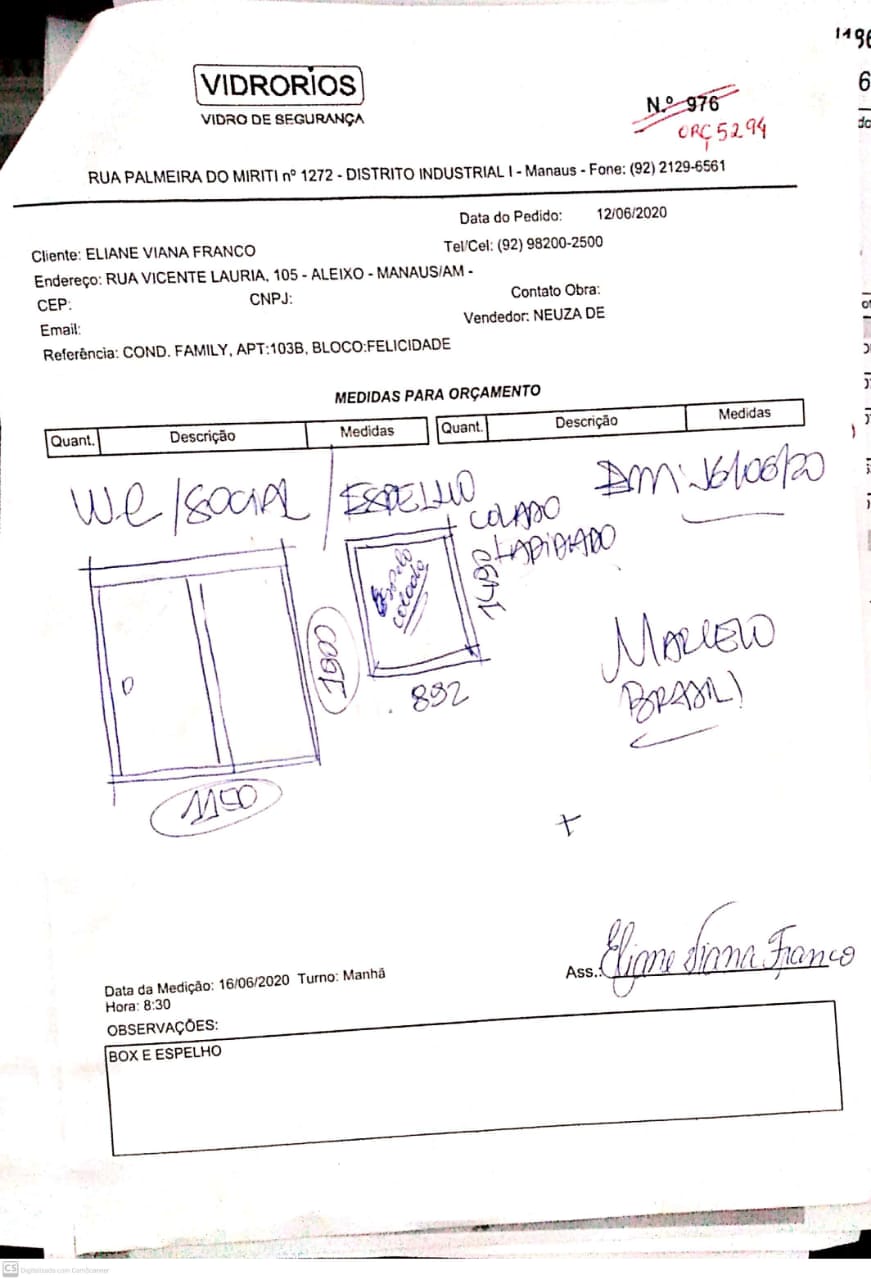 VIDRORIOS
VIDRO DE SEGURANÇA
N.º 976
ORÇ 5294
RUA PALMEIRA DO MIRITI nº 1272 - DISTRITO INDUSTRIAL I - Manaus - Fone: (92) 2129-6561
Data do Pedido: 12/06/2020
Cliente: ELIANE VIANA FRANCO
Tel/Cel: (92) 98200-2500
Endereço: RUA VICENTE LAURIA, 105 - ALEIXO - MANAUS/AM -
CEP:
CNPJ:
Contato Obra:
Email:
Vendedor: NEUZA DE
Referência: COND. FAMILY, APT:103B, BLOCO:FELICIDADE
MEDIDAS PARA ORÇAMENTO
Quant. Descrição Medidas Quant. Descrição Medidas
WC/SOCIAL / ESPELHO
COLADO
LAPIDADO
EM: 16/06/20
Espelho
colado
1900
892
1150
MARCELO
BRASIL
Ass.: Eliane Viana Franco
Data da Medição: 16/06/2020 Turno: Manhã
Hora: 8:30
OBSERVAÇÕES:
BOX E ESPELHO
CS Digitalizada com CamScanner